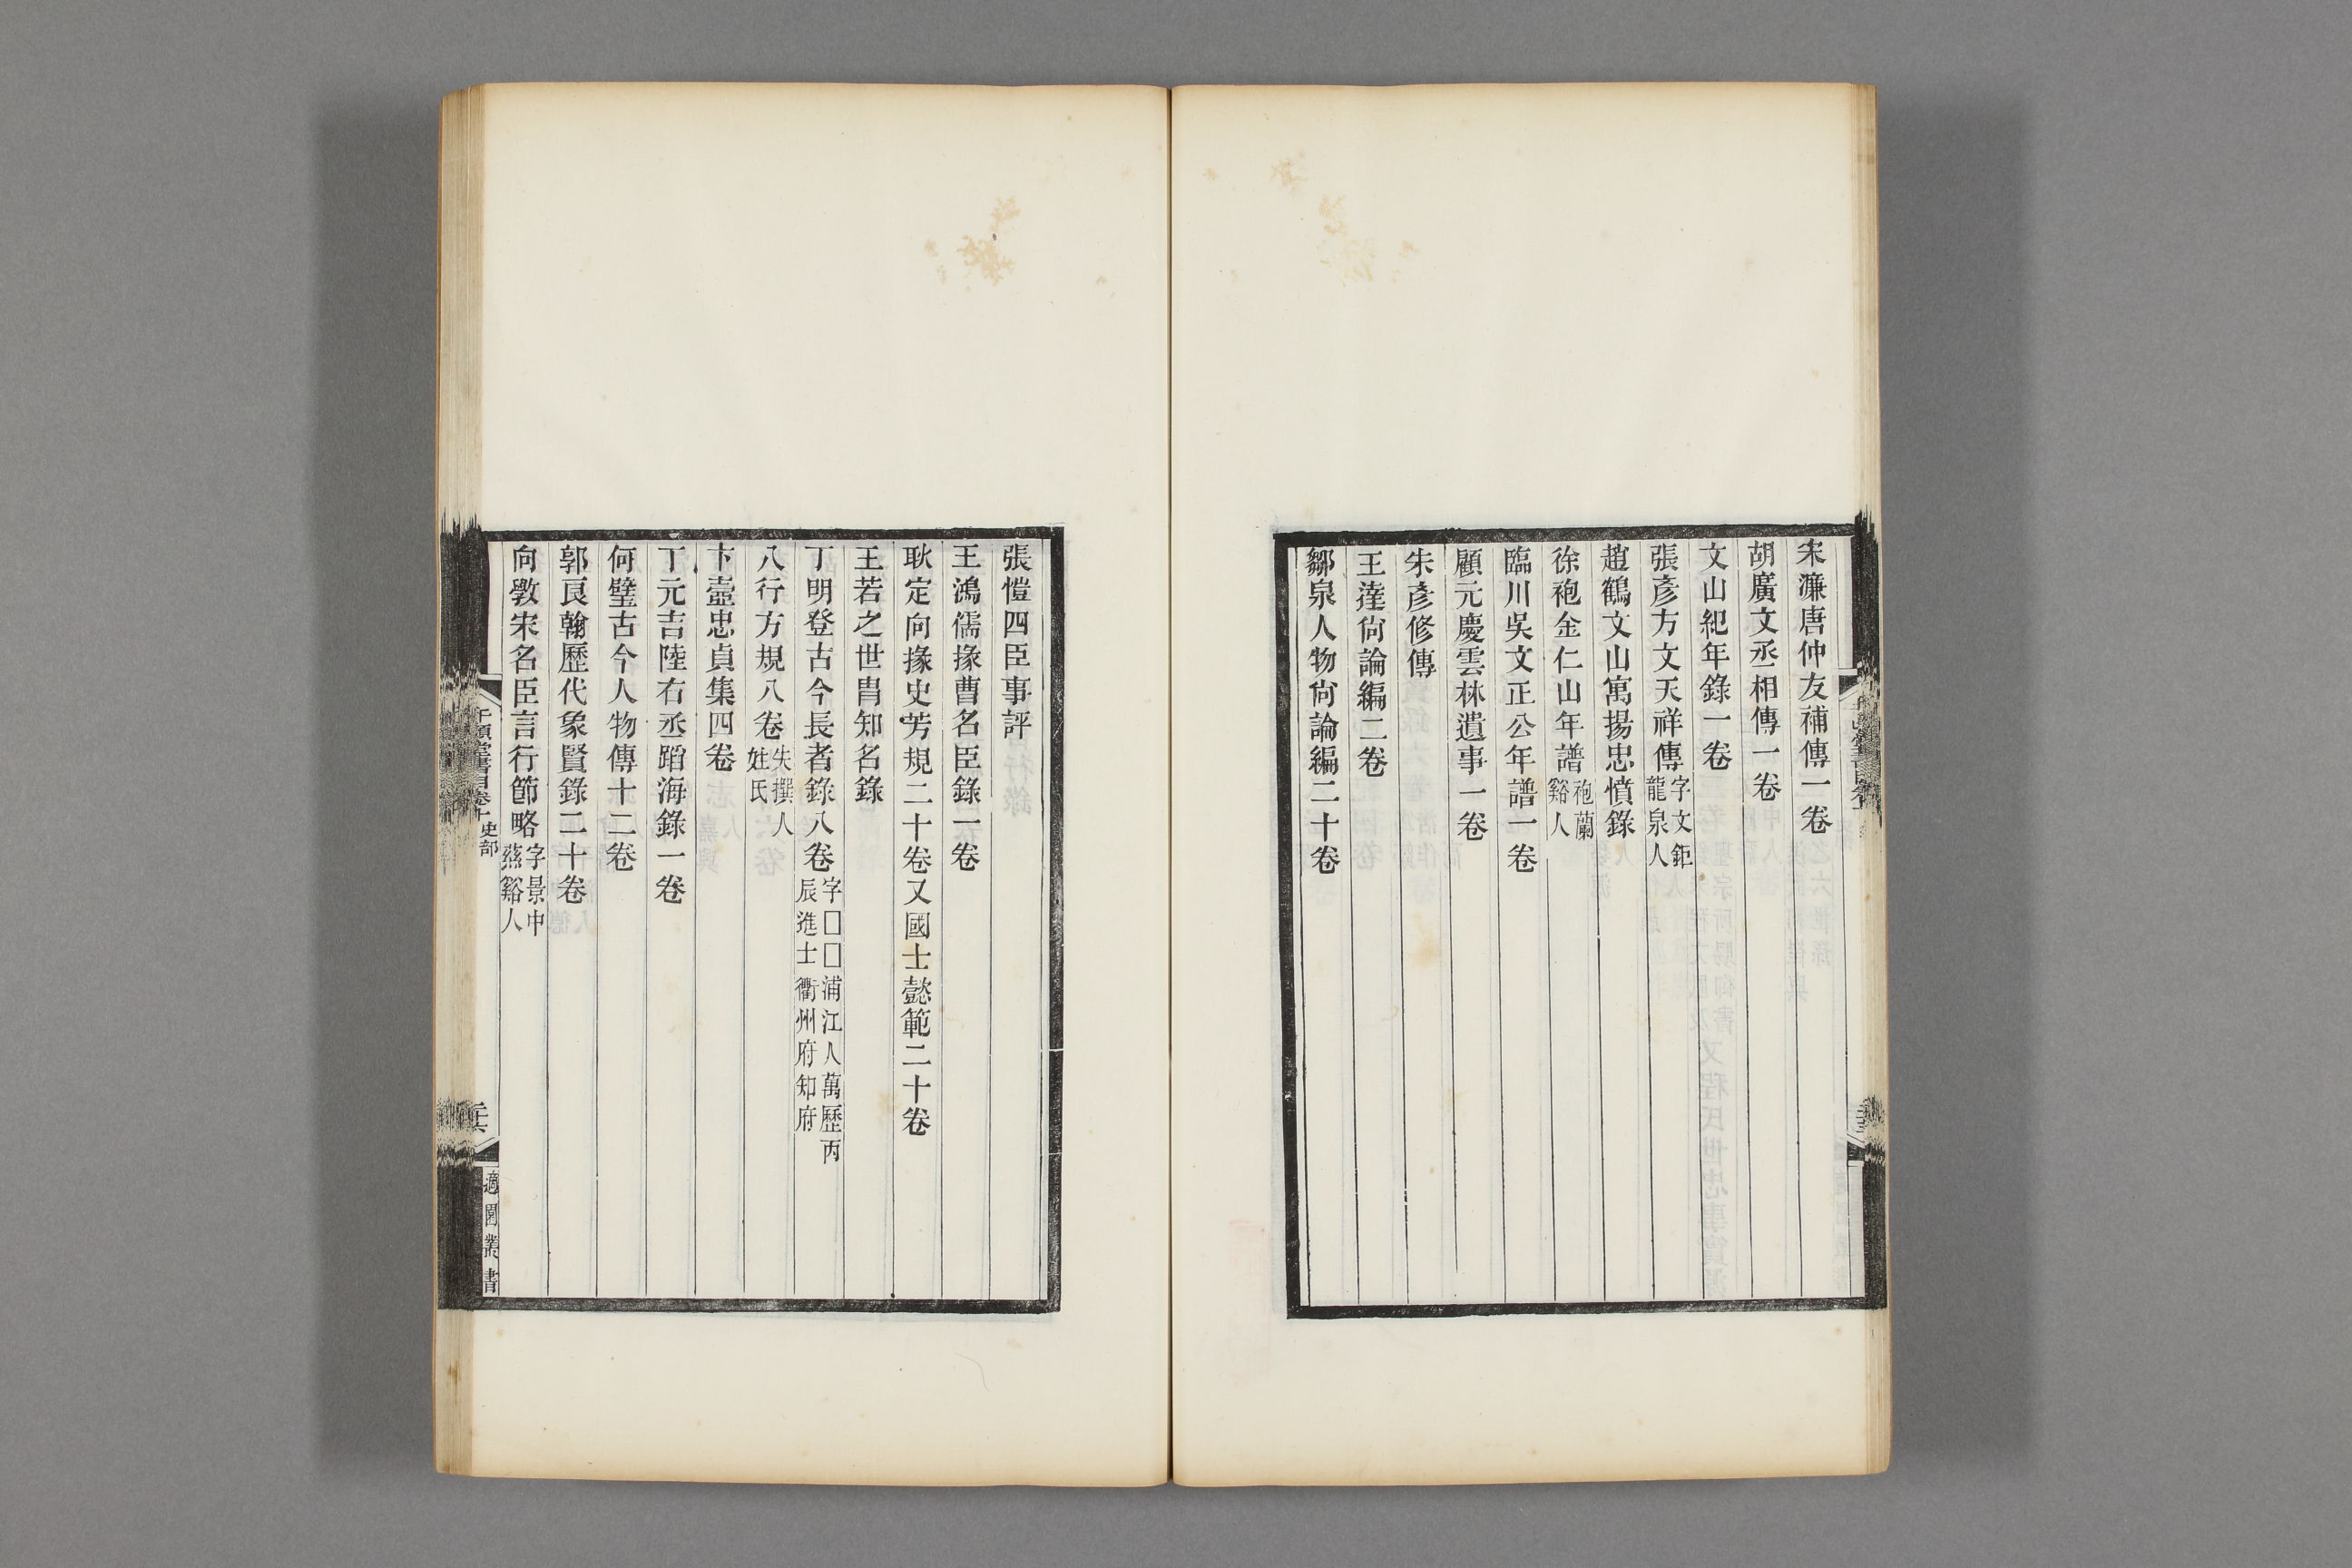 宋濂唐仲友補傳一卷
胡廣文丞相傳一卷
文山紀年錄一卷
張彥方文天祥傳字文鉅龍泉人
趙鶴文山寓揚忠憤錄
徐袍金仁山年譜袍蘭谿人
臨川吳文正公年譜一卷
顧元慶雲林遺事一卷
朱彥修傳
王達尙論編二卷
鄒泉人物尙論編二十卷
張愷四臣事評
王鴻儒掾曹名臣錄一卷
耿定向掾史芳規二十卷又國士懿範二十卷
王若之世胄知名錄
丁明登古今長者錄八卷字□□浦江人萬歷丙辰進士衢州府知府
八行方規八卷失撰人姓氏
卞壼忠貞集四卷
丁元吉陸右丞蹈海錄一卷
何璧古今人物傳十二卷
郭良翰歷代象賢錄二十卷
向斆宋名臣言行節略字景中燕谿人
千頃堂書目卷十 史部
適園叢書